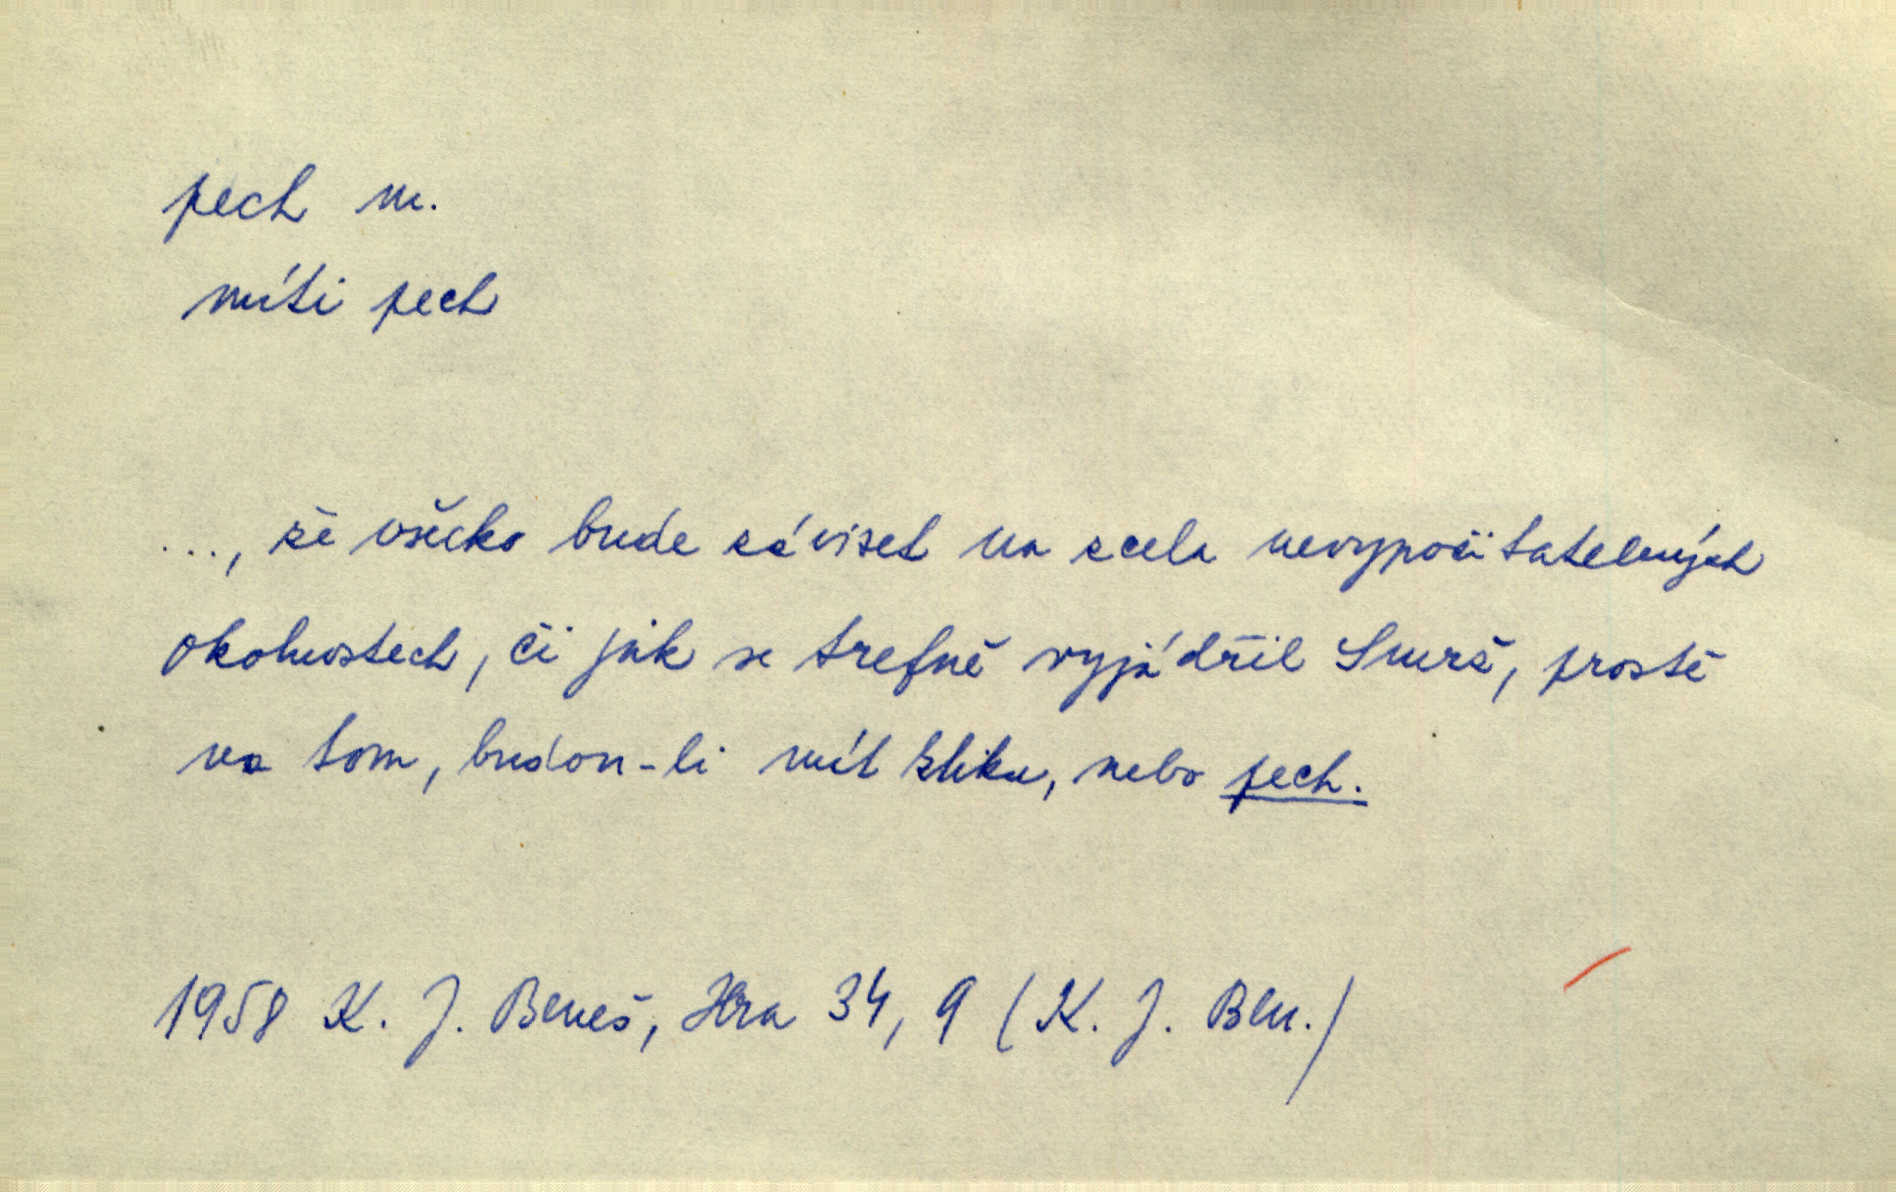 pech m.
míti pech
..., že všecko bude záviset na zcela nevypočitatelných
okolnostech, či jak se trefně vyjádřil Smrž, prostě
na tom, budou-li mít kliku, nebo pech.
1958 K. J. Beneš, Hra 34, 9 (K. J. Ben.)